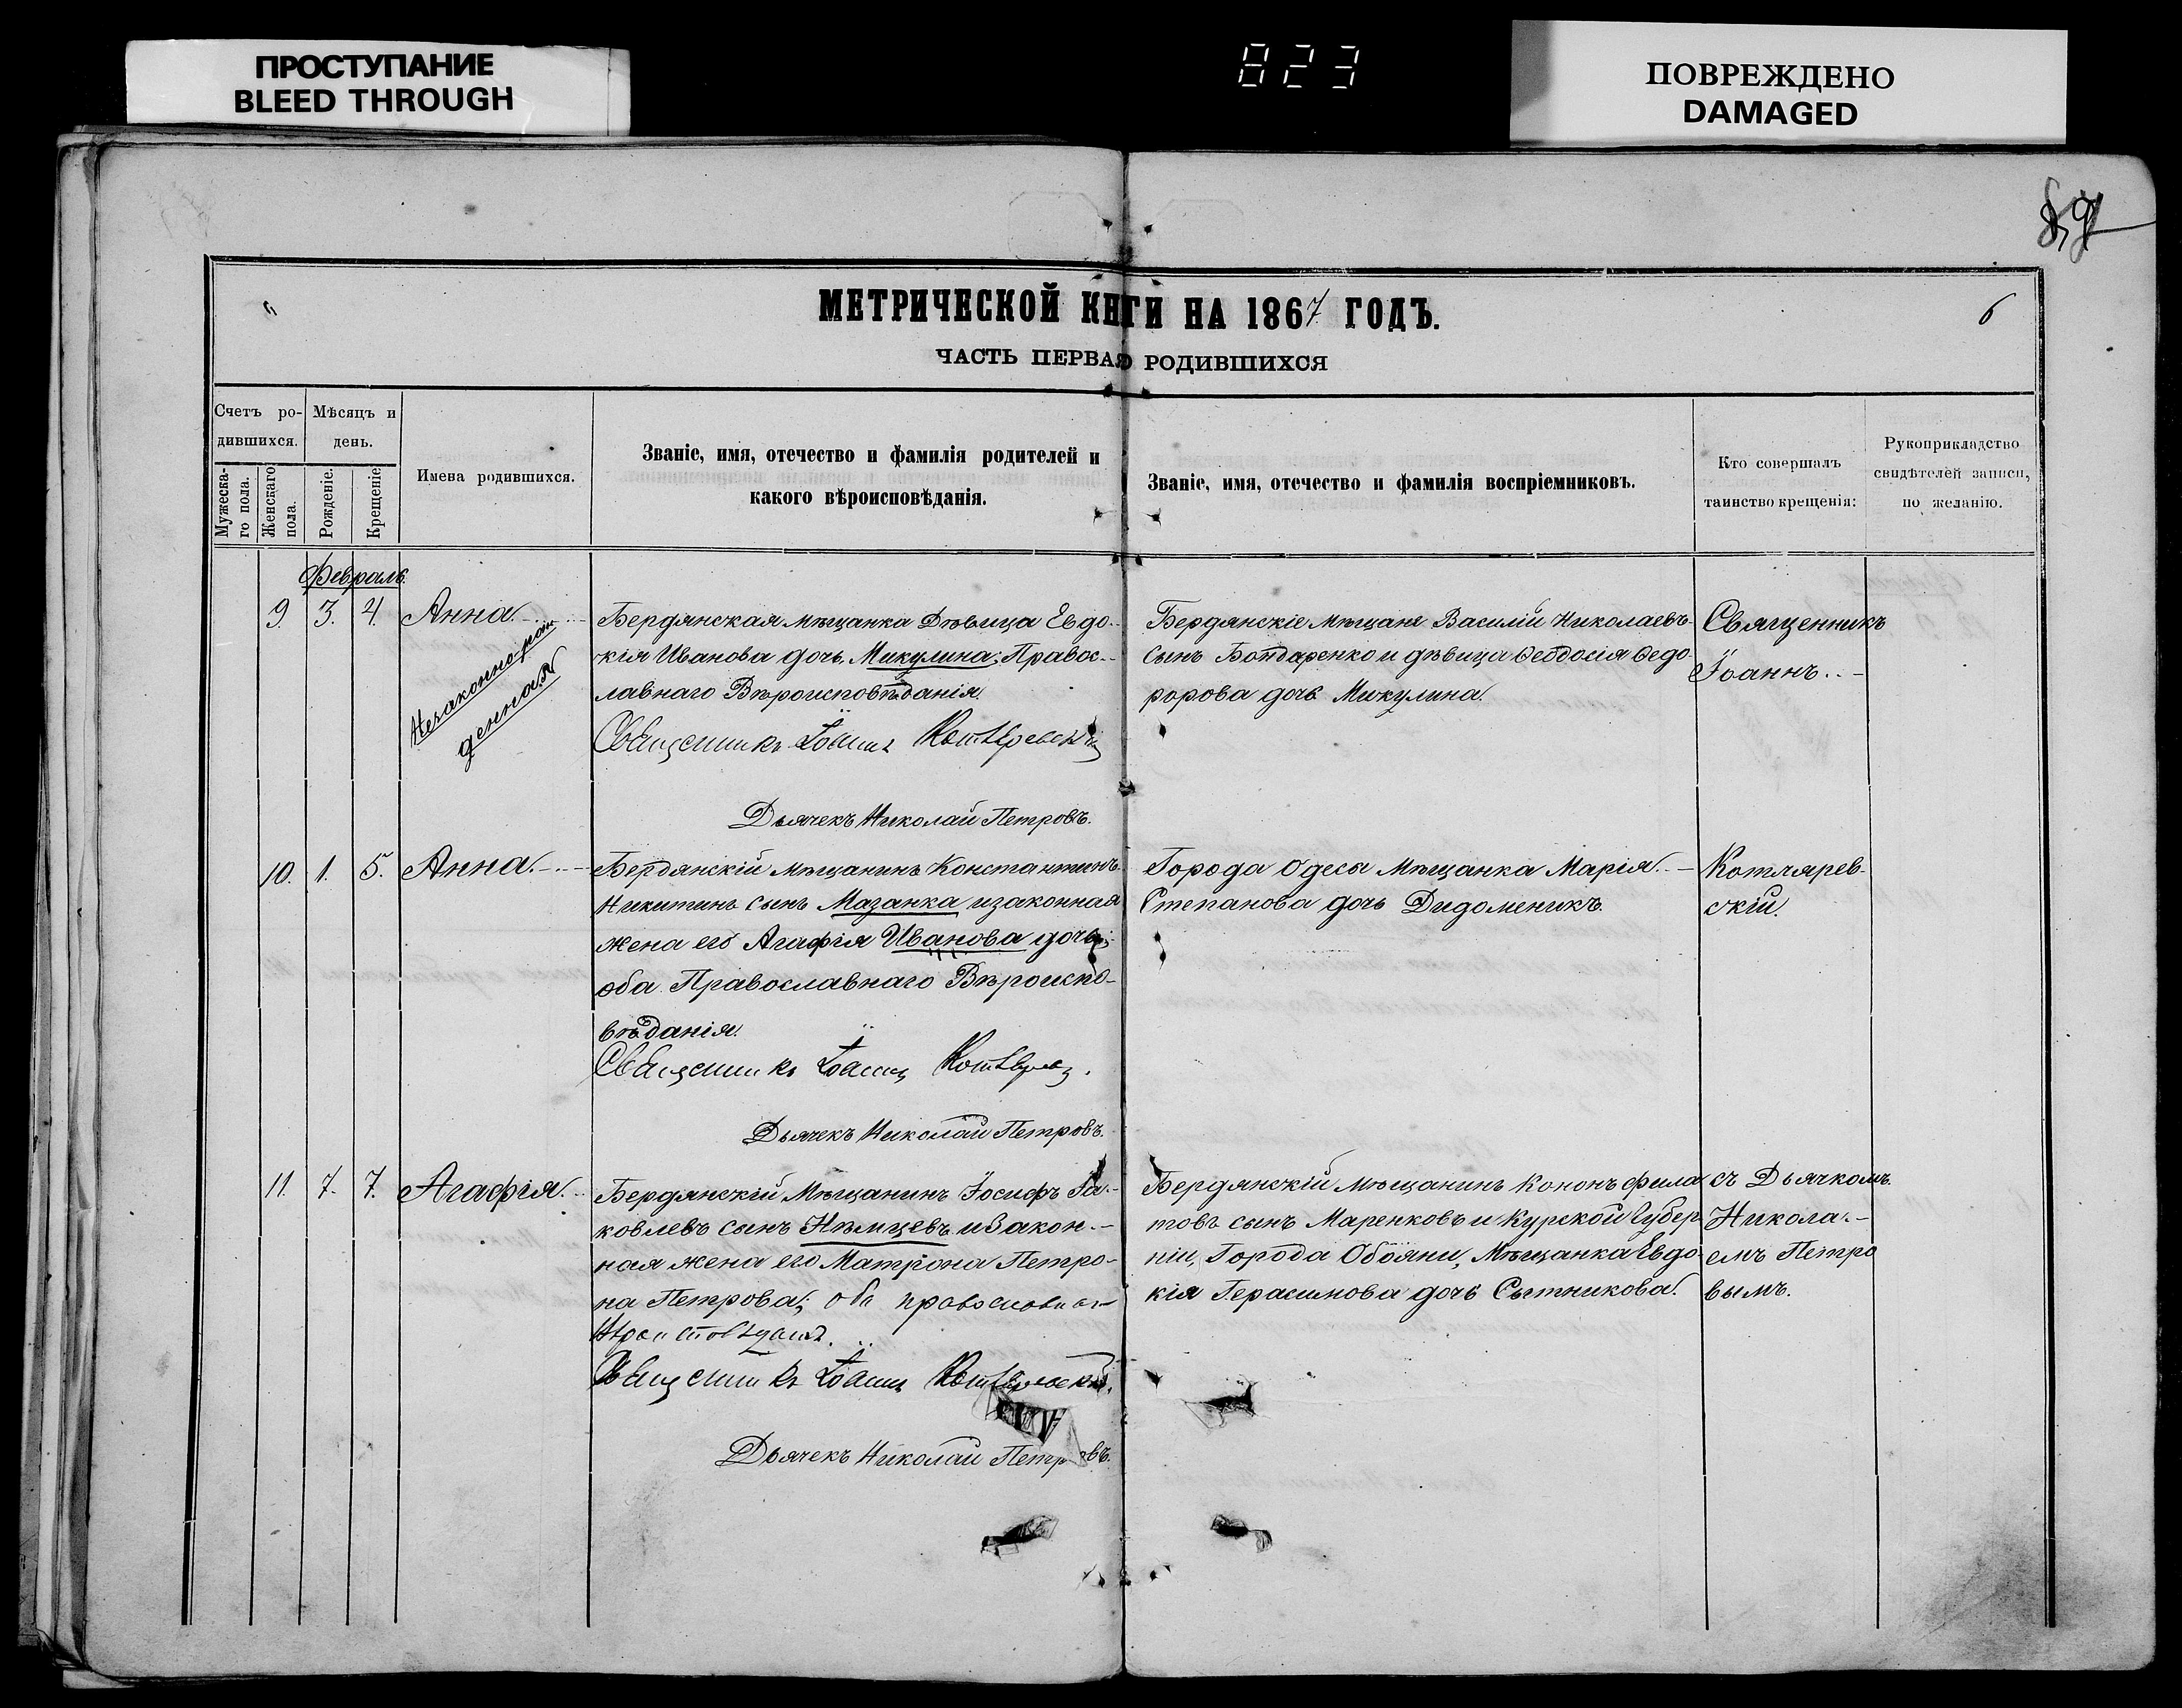 ПРОСТУПАНИЕ
BLEED THROUGH
823
ПОВРЕЖДЕНО
DAMAGED
МЕТРИЧЕСКОЙ КНГИ НА 1867 ГОДЪ.
6
ЧАСТЬ ПЕРВАЯ РОДИВШИХСЯ
Счетъ ро-
дившихся.
Мужеска-
го пола.
Женскаго
пола.
Мѣсяцъ и
день.
Рожденіе.
Крещеніе
Имена родившихся.
Званіе, имя, отечество и фамилія родителей и
какого вѣроисповѣданія.
Званіе, имя, отечество и фамилія воспріемниковъ.
Кто совершалъ
таинство крещенія:
Рукоприкладство
свидѣтелей записи,
по желанію.
Февраль.
9 3. 4. Анна.
Незаконнорож
денная
Бердянская мѣщанка Дѣвица Евдо-
кія Иванова дочь Микулина, Правос-
лавнаго Вѣроисповѣданія.
Священникъ Іоаннъ Котляревскій
Дьячекъ Николай Петровъ.
Бердянскіе мѣщане Василій Николаевъ
сынъ Бондаренко и дѣвица Ѳеодосія Ѳедо
ророва дочь Микулина.
Священникъ
Іоаннъ.
10. 1. 5. Анна.
Бердянскій мѣщанинъ Константинъ
Никитинъ сынъ Мазанка и законная
жена его Агафія Иванова дочь,
оба Православнаго Вѣроиспо-
вѣданія.
Священникъ Іоаннъ
Дьячекъ Николай Петровъ.
Города Одесы Мѣщанка Марія
Степанова дочь Дидоменикъ.
Котлярев-
скій.
11. 7. 7. Агафія.
Бердянскій Мѣщанинъ Іосифъ Іа-
ковлевъ сынъ Нѣмцевъ и Закон-
ная жена его Матрона Петро-
на Петрова; оба
Священникъ Іоаннъ Котляревскій.
Дьячекъ Николай Петровъ.
Бердянскій мѣщанинъ Кононъ Фила
товъ сынъ Маренковъ и Курской Губер
ніи, Города Обояни, Мѣщанка Евдо
кія Герасимова дочь Сытникова.
съ Дьячкомъ
Никола-
емъ Петро
вымъ.